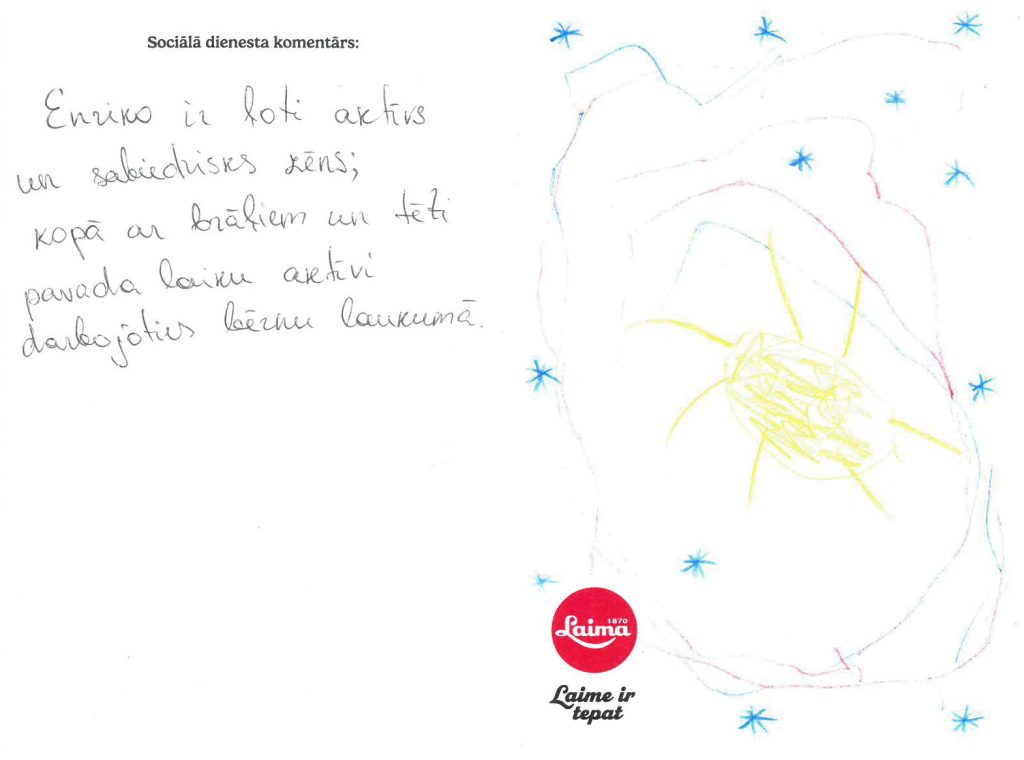 Sociālā dienesta komentārs:
Enriko ir ļoti aktīvs
un sabiedrisks zēns;
kopā ar brāļiem un tēti
pavada laiku aktīvi
darbojoties bērnu laukumā.
Laima
1870
Laime ir
tepat